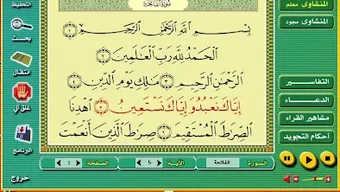 سورة الفاتحة
بِسْمِ ٱللَّهِ ٱلرَّحْمَٰنِ ٱلرَّحِيمِ ١
ٱلْحَمْدُ لِلَّهِ رَبِّ ٱلْعَٰلَمِينَ ٢
ٱلرَّحْمَٰنِ ٱلرَّحِيمِ ٣ مَٰلِكِ يَوْمِ ٱلدِّينِ ٤
إِيَّاكَ نَعْبُدُ وَإِيَّاكَ نَسْتَعِينُ ٥ ٱهْدِنَا
ٱلصِّرَٰطَ ٱلْمُسْتَقِيمَ ٦ صِرَٰطَ ٱلَّذِينَ أَنْعَمْتَ
المنشاوى معلم
المنشاوى مجود
التفاسير
الدعاء
مشاهير القراء
أحكام التجويد
السورة الفاتحة الآية 5 الصفحة 1
التحفيظ
بحث
انتقال
البرنامج
خروج